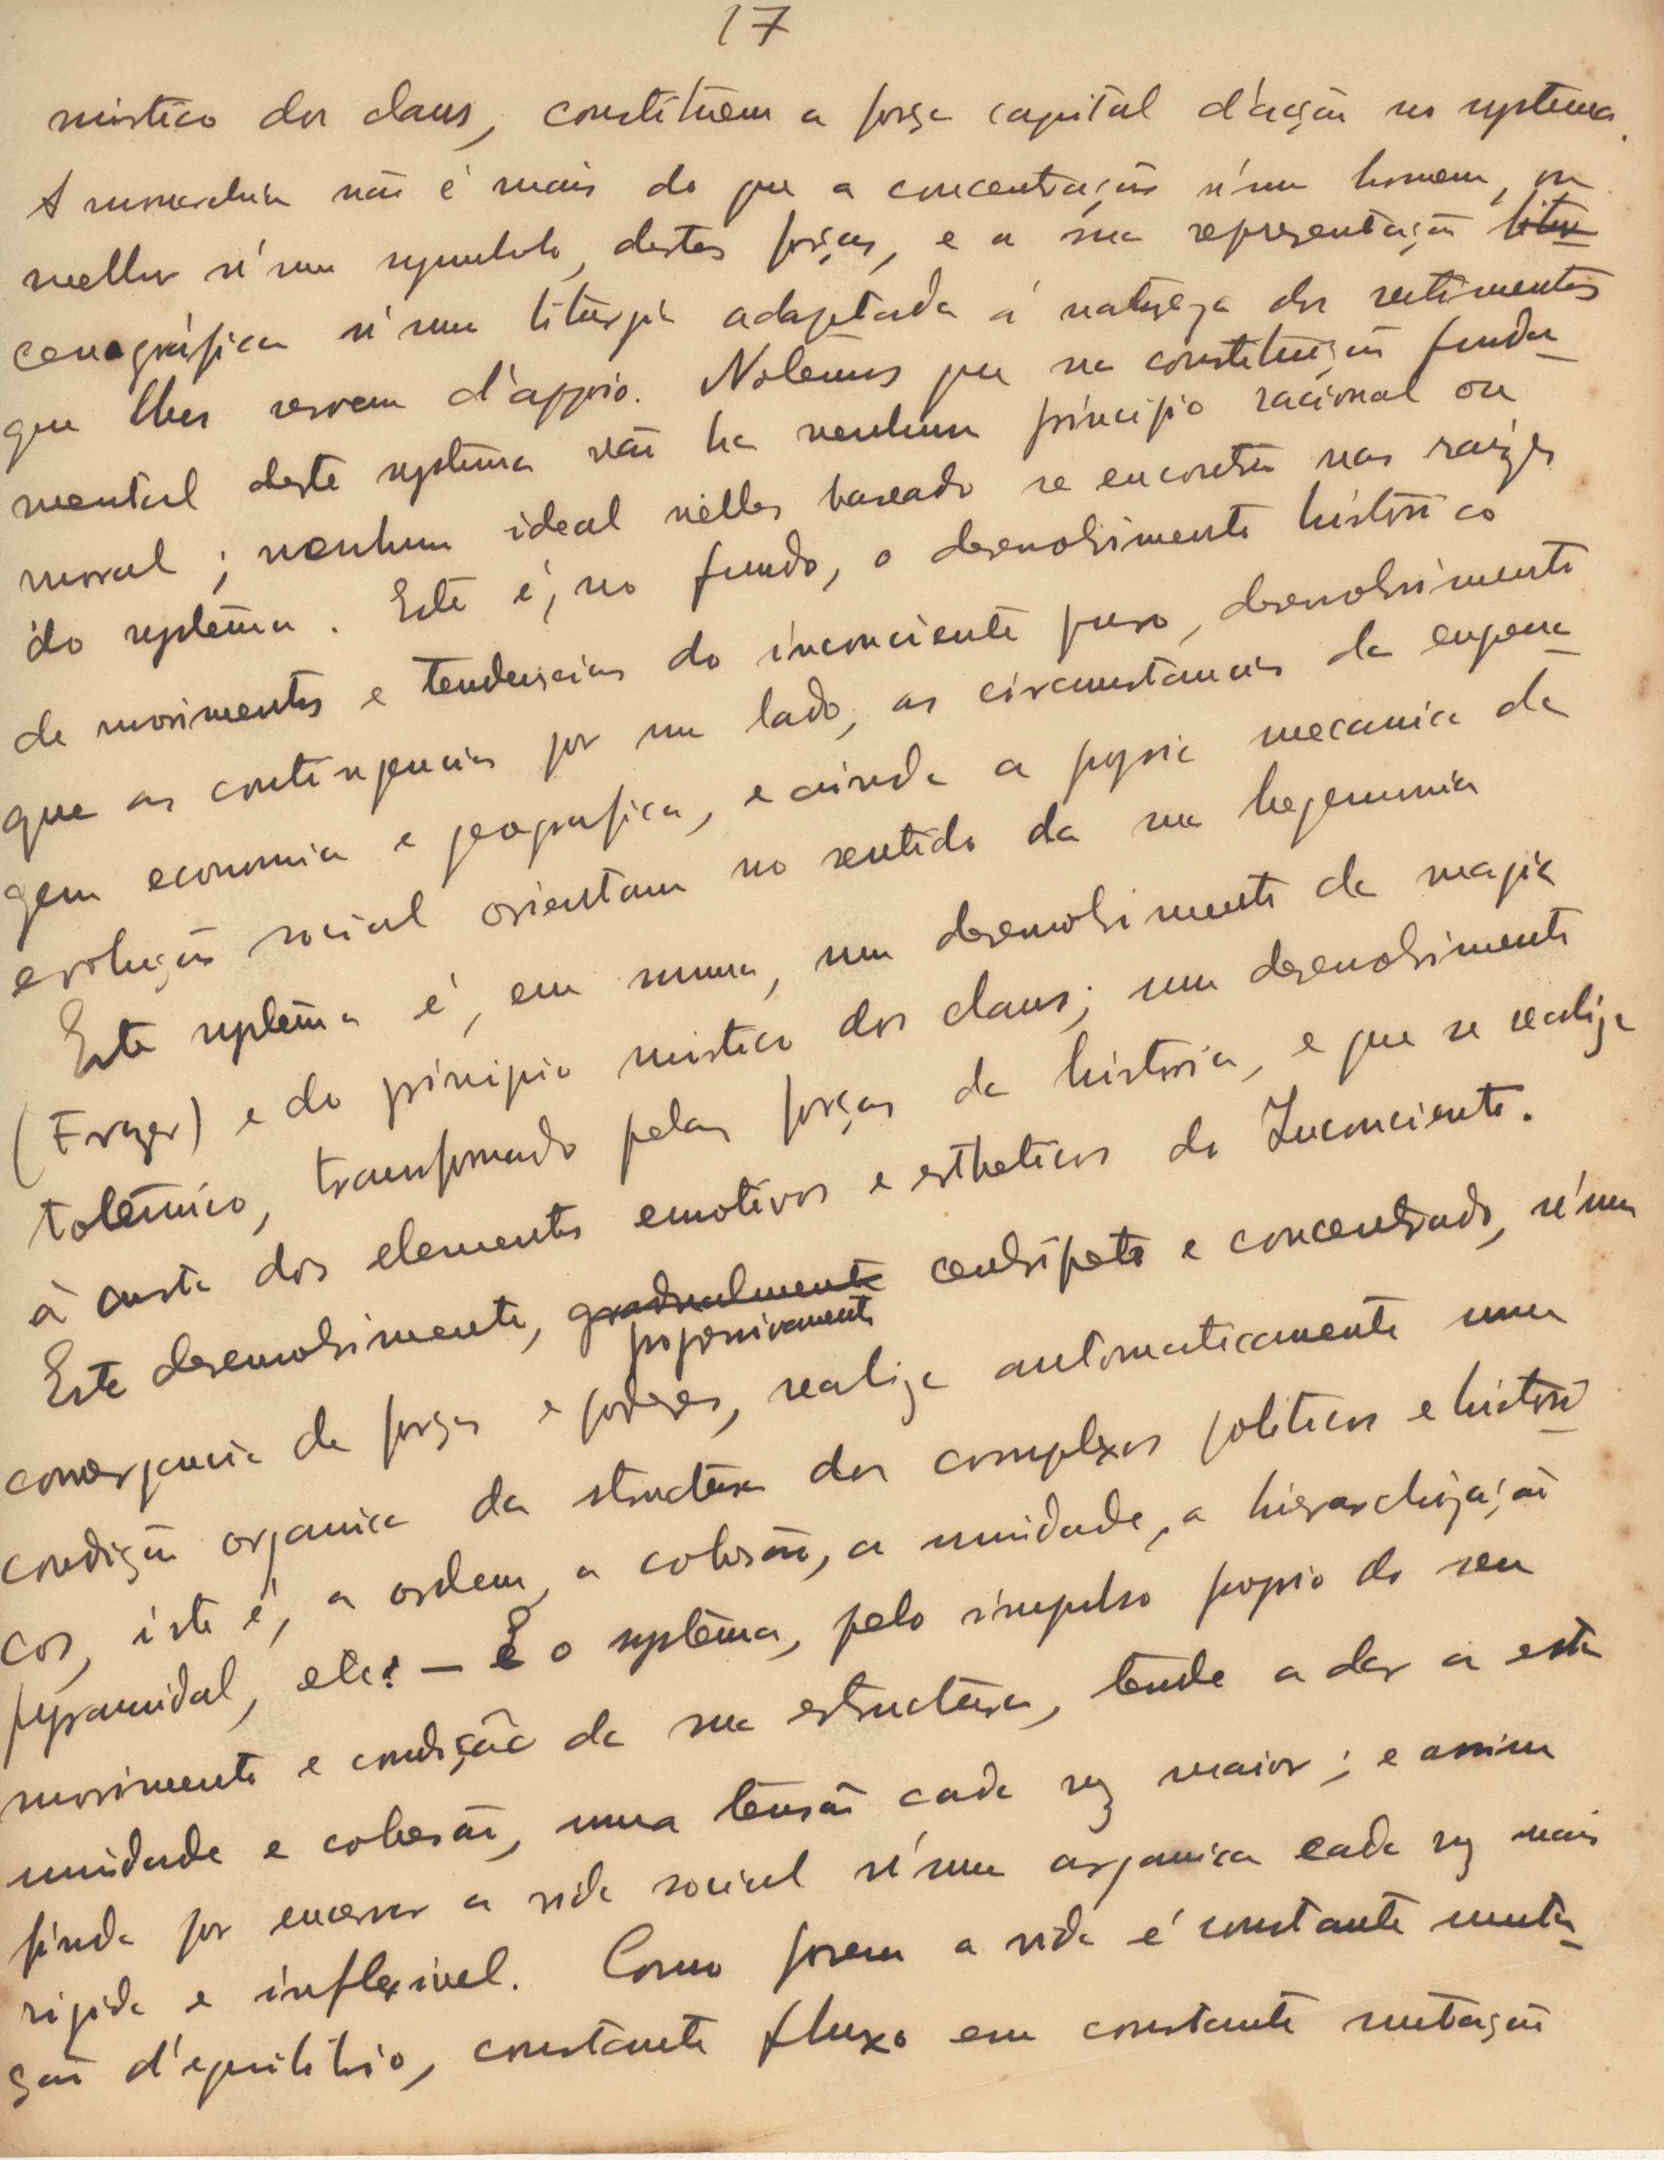 17
mistico dos clans, constituem a força capital d'acção no systema.
A monarchia não é mais do que a concentração n'um homem, ou
melhor n'um symbolo, destas forças, e a sua representação litur
cenográfica n'uma liturgia adaptada á natureza dos sentimentos
que lhes servem d'appoio. Notemos que na constituição funda-
mental deste systema não ha nenhum principio racional ou
moral; nenhum ideal nelles baseado se encontra nas raizes
do systema. Este é, no fundo, o desenvolvimento histórico
de movimentos e tendencias do inconciente puro, desenvolvimento
que as contingencias por um lado, as circumstancias da engrena-
gem economia e geografica, e ainda a propria mecanica da
evolução social orientam no sentido da sua hegemonia
Este systema é, em summa, um desenvolvimento da magia
(Frazer) e do principio mistico dos clans; um desenvolvimento
totémico, transformado pelas forças da historia, e que se realiza
à custa dos elementos emotivos e estheticos do Inconciente.
Este desenvolvimento, gradualmente centripeto e concentrado, n'uma
progressivamente
convergencia de forças e poderes, realiza automaticamente uma
condição organica da structura dos complexos politicos e histori-
cos, isto é, a ordem, a cohesão, a unidade, a hierarchização
pyramidal, etc. — E o systema, pelo impulso proprio do seu
movimento e condição da sua estructura, tende a dar a esta
unidade e cohesão, uma tensão cada vez maior; e assim
finda por encerrar a vida social n'uma organica cada vez mais
rigida e inflexivel. Como porem a vida é constante muta-
ção d'equilibrio, constante fluxo em constante mutação